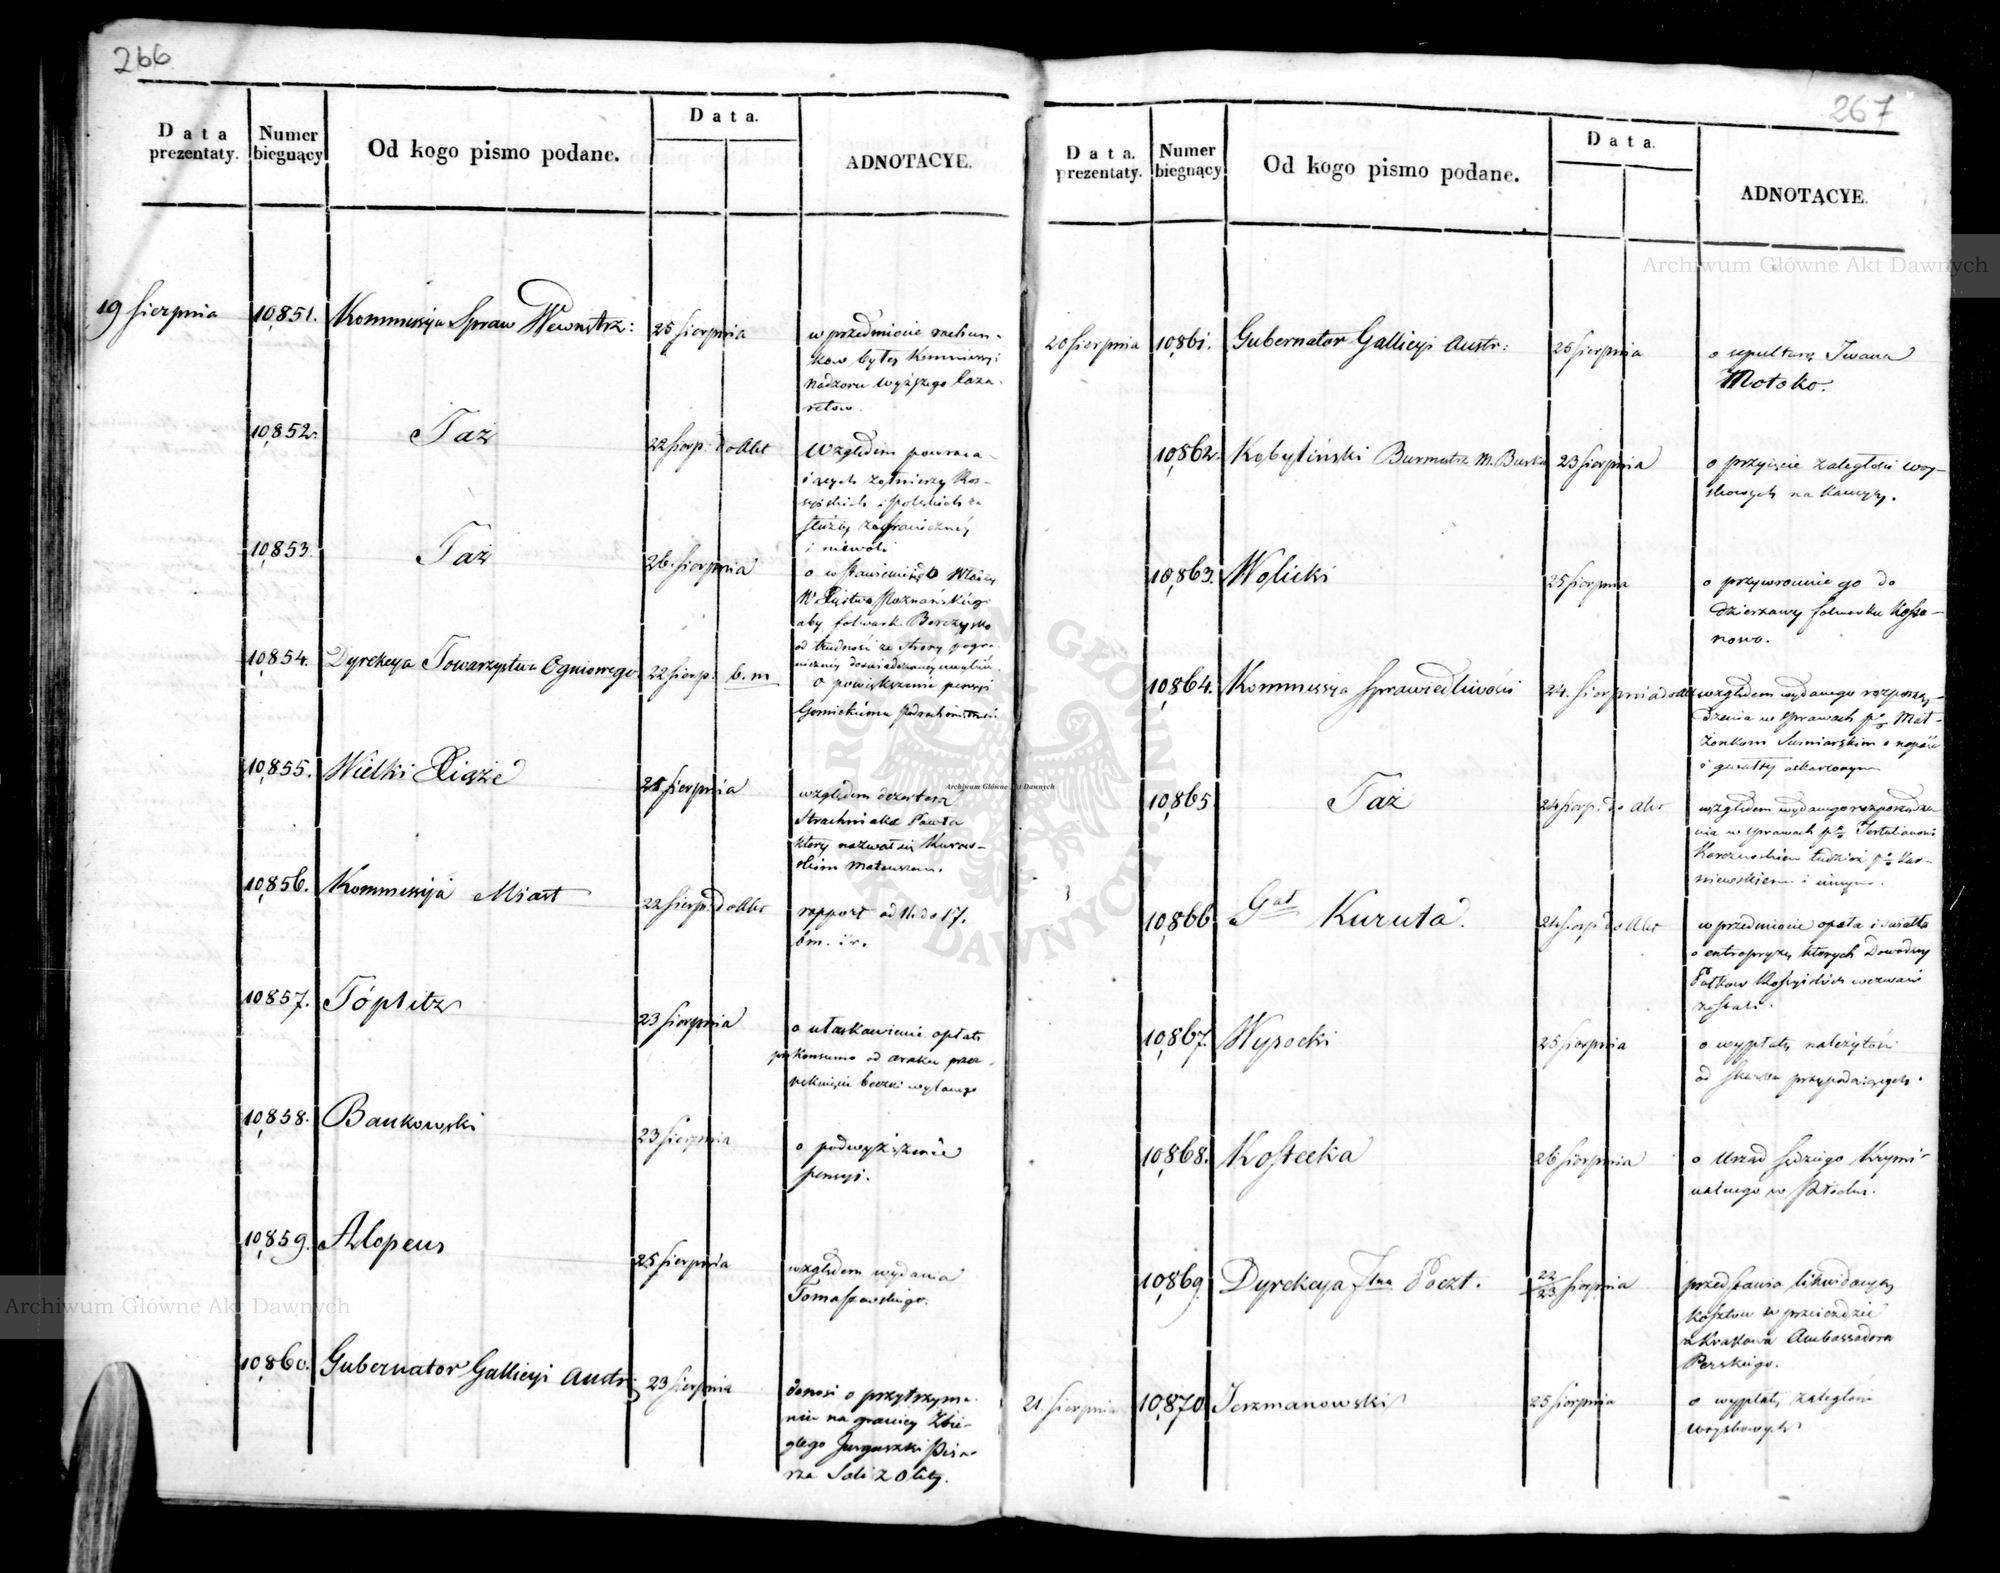 266
Data prezentaty.
Numer biegnący
Od kogo pismo podane.
Data.
ADNOTACYE.
19 Sierpnia
10,851.
Kommissya Spraw Wewnętrz:
25 Sierpnia
w przedmiocie rachun-
kow byłey Kommissyi
nadzoru wyższego laza-
retow.
10,852.
Taż
22 Sierp. do Akt
Względem powraca-
iących żołnierzy Ros-
syiskich i Polskich ze
służby zagraniczney
i niewoli
10,853.
Taż
26. Sierpnia
o wstawienie się do Władzy
W Xięstwa Poznańskiego
aby folwark
od trudności ze strony pogra-
niczney
10,854.
Dyrekcya Towarzystwa Ogniowego
22 Sierp. b. m
o powiększenie pensyi
10,855.
Wielki Xiąże
21 Sierpnia
względem dezertera
Strachniaka Pawła
ktory nazwał się Kurow-
skim Mateuszem.
10,856.
Kommissyja Miast
22 Sierp. do Akt
rapport od 11. do 17.
b m. i r.
10,857.
Töplitz
23 Sierpnia
o ułaskawienie opłaty
konsumo od araku przez
pęknięcie beczki wylanego
10,858.
Bankowski
23 Sierpnia
o podwyższenie
pensyi.
10,859.
Alopeus
25 Sierpnia
względem wydania
Tomaszewskiego.
10,860.
Gubernator Gallicyi Austr:
23 Sierpnia
donosi o przytrzyma-
niu na granicy Zbie-
głego Pisa-
rza Soli z Olity.
267
Data. prezentaty.
Numer biegnący
Od kogo pismo podane.
Data.
ADNOTACYE.
20 Sierpnia
10,861.
Gubernator Gallicyi Austr:
25 Sierpnia
o sepulturę Iwana
Motoko.
10,862.
Kobyliński Burmistrz M. Buska
23 Sierpnia
o przyięcie zaległości woy-
skowych na kaucyę.
10,863.
Wolicki
25 Sierpnia
o przywrocenie go do
dzierzawy folwarku Kossa-
nowo.
10,864.
Kommissya Sprawiedliwości
24. Sierpnia do Akt
względem wydanego rozporzą-
dzenia w sprawach Mał-
żonkom Susniarskim o napaść
i gwałty oskarżonym
10,865
Taż
24 Sierp. do Akt
względem wydanego rozporządze-
nia w sprawach
tudzież
i innym.
10,866
Gał Kuruta.
24 Sierp. do Akt
w przedmiocie opału i swiatła
o entrepryzę ktorych Dowodzcy
Pułkow Rossyiskich wezwani
zostali.
10,867.
Wysocki
25 Sierpnia
o wypłatę należytości
od Skarbu przypadaiących.
10,868.
Kostecka
26 Sierpnia
o Urząd Sędziego Krymi-
nalnego w Płocku.
10,869
Dyrekcya Jlna Poczt.
22/23 Sierpnia
przedstawia likwidacyę
kosztow w przeieździe
z Krakowa Ambassadora
Perskiego.
21. Sierpnia
10,870
Jerzmanowski
25 Sierpnia
o wypłatę zaległości
woyskowych
Archiwum Główne Akt Dawnych
Archiwum Główne Akt Dawnych
Archiwum Główne Akt Dawnych
ARCHIWUM GŁÓWNE AKT DAWNYCH